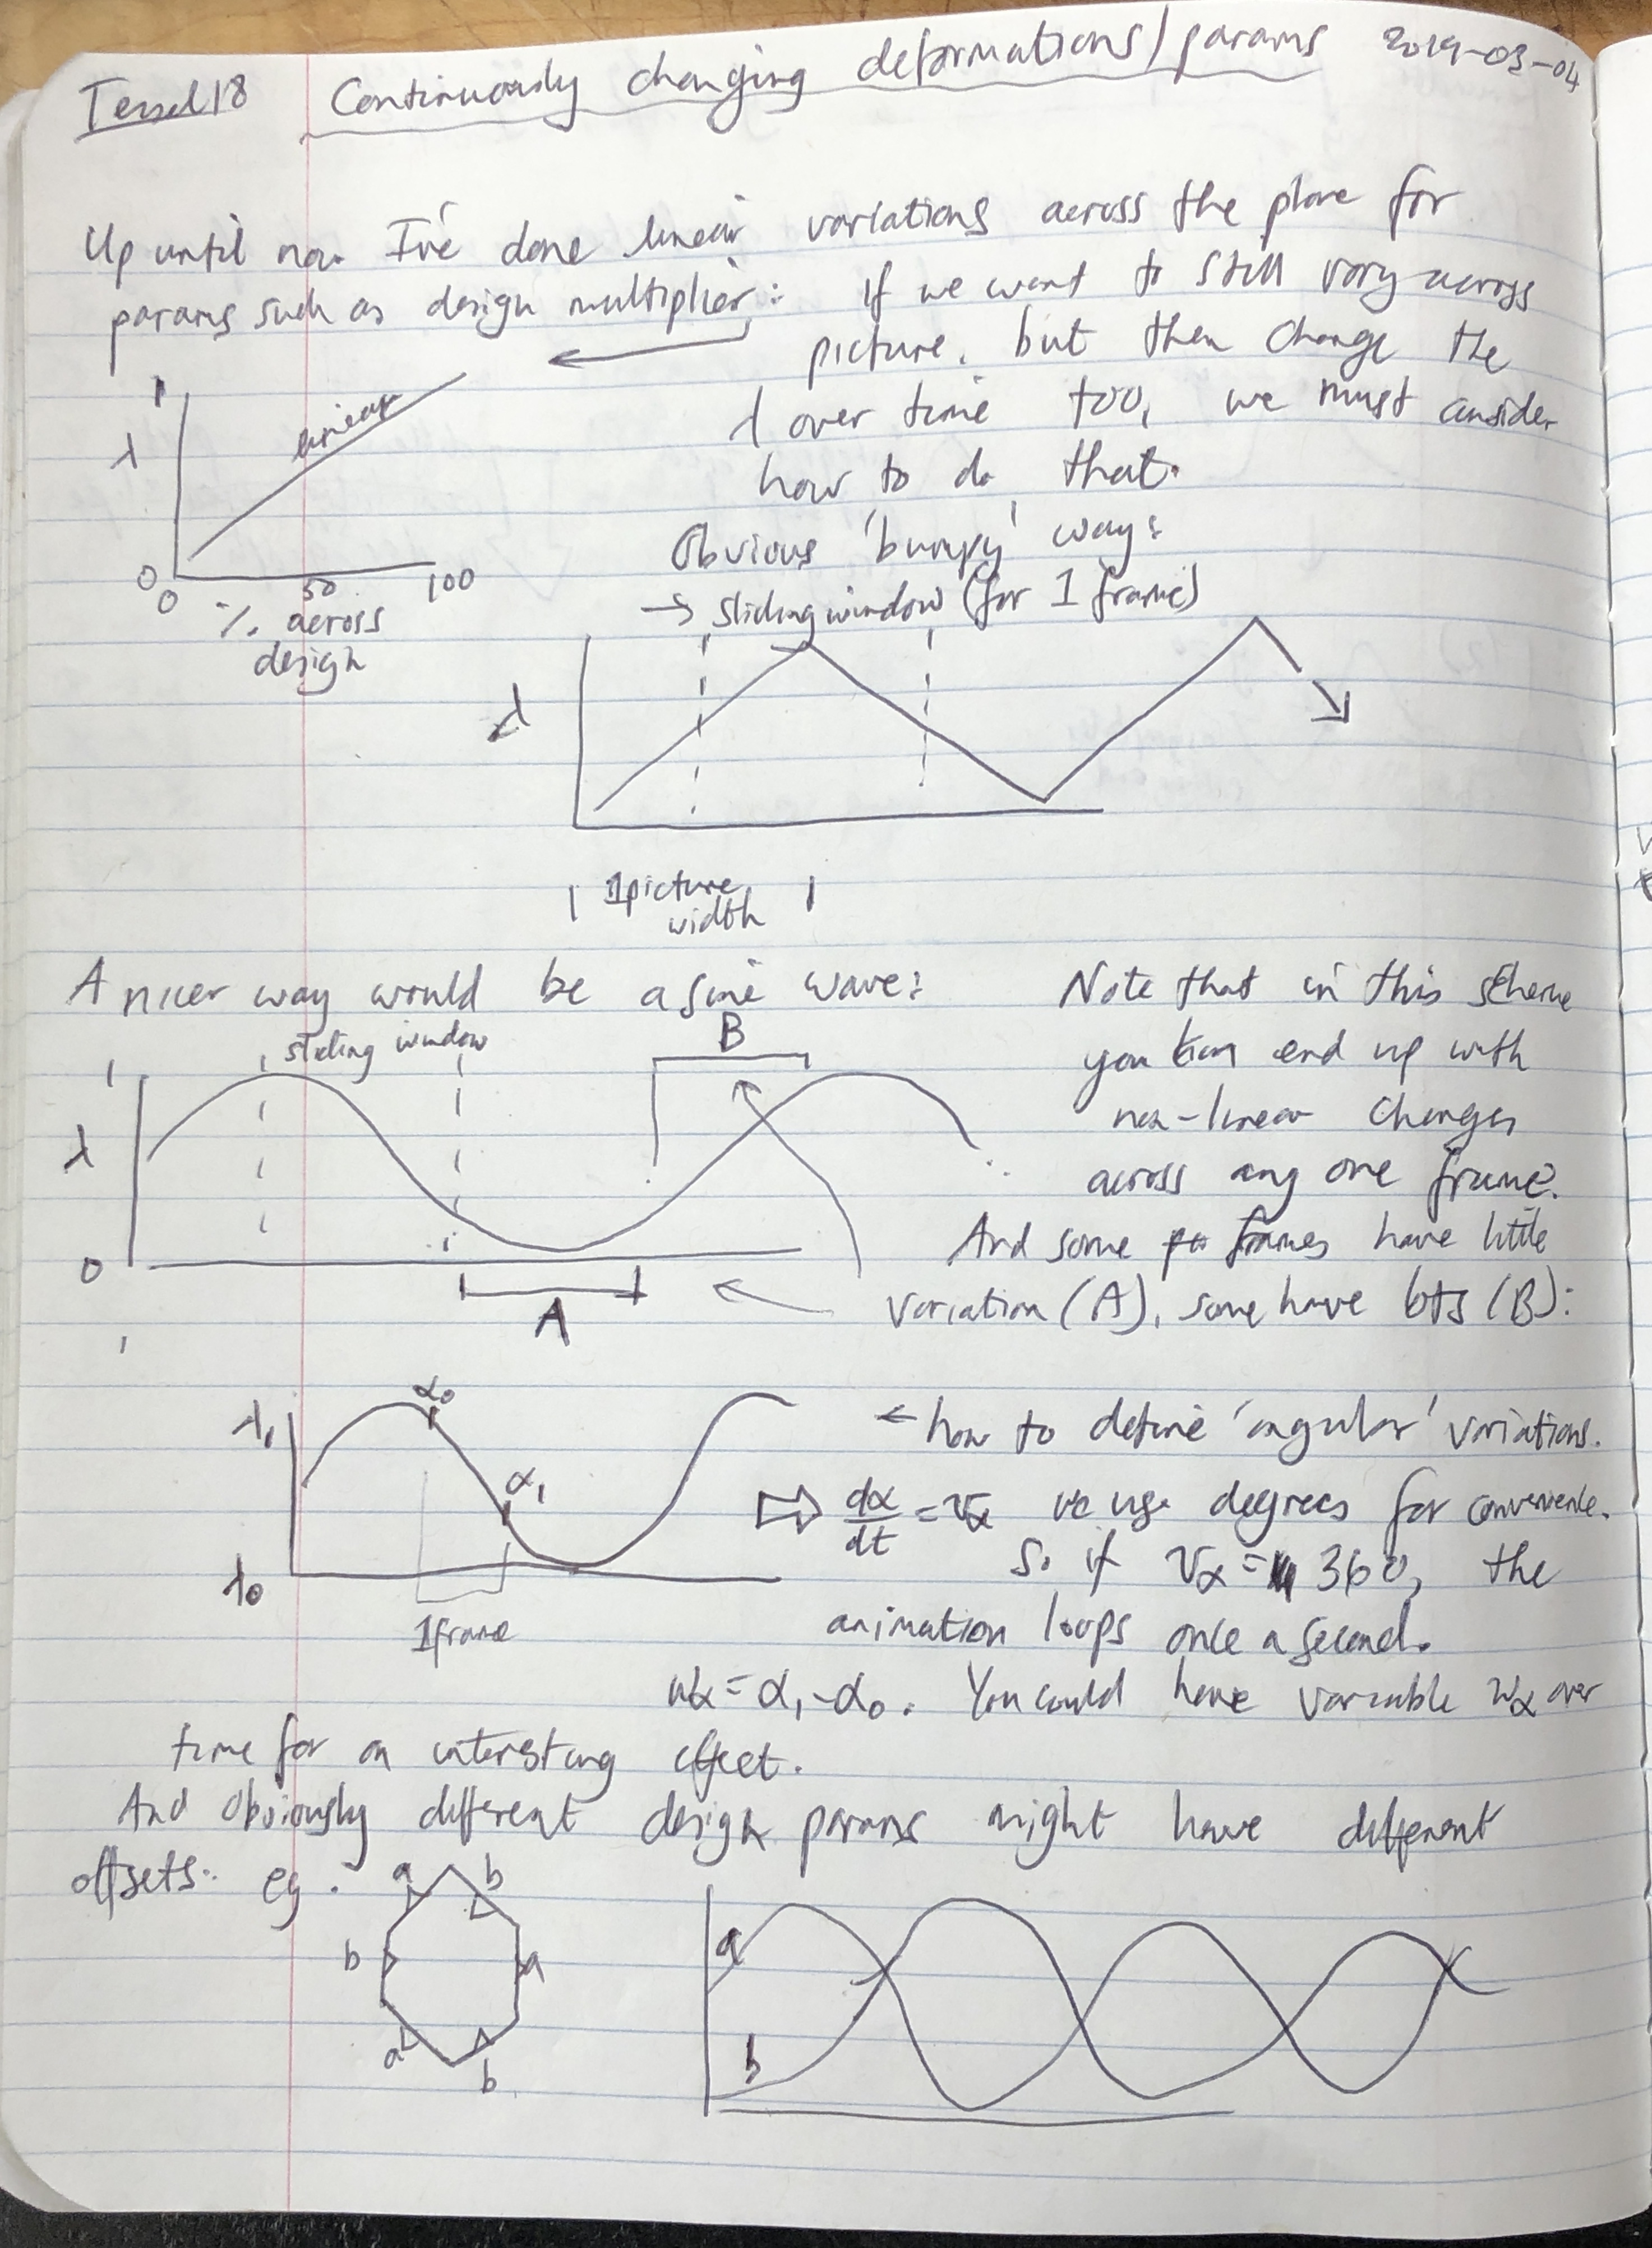 Tessel18 Continuously changing deformations/params 2019-03-04
Up until now I've done linear variations across the plane for
params such as design multiplier: If we want to still vary across
picture, but then change the
λ over time too, we must consider
how to do that.
1
λ
linear
0
0 50 100
% across
design
Obvious 'bumpy' way:
→ sliding window (for 1 frame)
λ
1 picture
width
A nicer way would be a sine wave:
sliding window
B
1
λ
0
A
Note that in this scheme
you can end up with
non-linear changes
across any one frame.
And some frames have little
variation (A), some have lots (B):
λ₁
α₀
α₁
λ₀
1 frame
← how to define 'angular' variations.
⇒ dα/dt = vα we use degrees for convenience.
So if vα = 360, the
animation loops once a second.
wα = α₁-α₀. You could have variable wα over
time for an interesting effect.
And obviously different design params might have different
offsets. eg.
a b
b a
a b
a
b